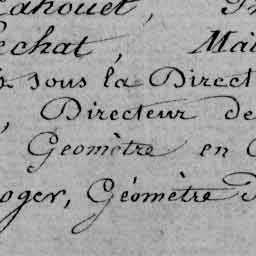 Cahouet,
echat, Mai
sous la Direct
, Directeur de
Geomètre en
oger, Géomètre